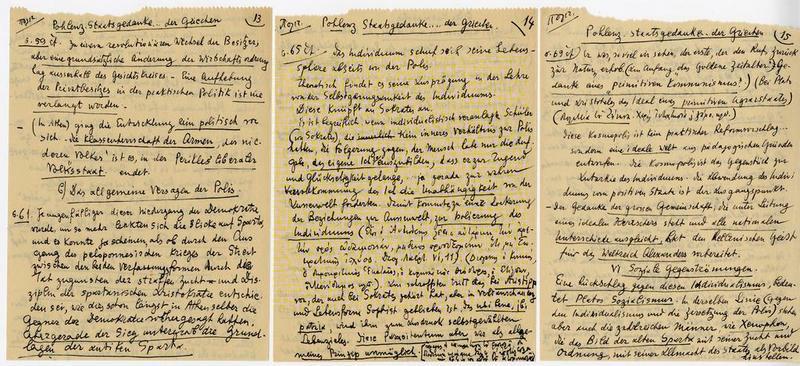 Pohlenz. Staatsgedanke .. der Griechen 13
S. 59 ff. Zu einem revolutionären Wechsel des Besitzes,
aber eine grundsätzliche Änderung der Wirtschaftsordnung
lag ausserhalb des Gesichtskreises – Eine Aufhebung
der Privatbesitzes in der praktischen Politik ist nie
verlangt worden.
– (In Athen) ging die Entwicklung rein politisch vor
sich. Die Klassenherrschaft der Armen, der nie-
deren Volkes ist es, in der Perikles liberaler
Volksstaat endet.
c) Das allgemeine Versagen der Polis.
S. 61 Je augenfälliger dieser Niedergang der Demokratie
wurde, um so mehr lenkten sich die Blicke auf Sparta,
und es konnte ja scheinen, als ob durch den Aus-
gang des peloponnesischen Krieges der Streit
zwischen den beiden Verfassungsformen durch die
Tat zugunsten der straffen Zucht und Dis-
ziplin der spartanischen Aristokratie entschie-
den sei, wie das schon längst in Athen selbst die
Gegner der Demokratie vorhergesagt hatten.
Aber gerade der Sieg untergrub die Grund-
lagen der antiken Sparta.
Pohlenz Staatsgedanke .... der Griechen. 14
S. 65 ff. Das Individuum schuf sich seine Lebens-
sphäre abseits von der Polis.
Theoretisch findet es seine Ausprägung in der Lehre
von der Selbstgenugsamkeit des Individuums.
Diese knüpft an Sokrates an.
Es ist begreiflich wenn individualistisch veranlagte Schüler
(des Sokrates), die innerlich kein inneres Verhältnis zur Polis
hatten, die Folgerung zogen, der Mensch habe nur die Auf-
gabe, das eigene Ich auszubilden, dass er zur Tugend
und Glückseligkeit gelange, ja gerade zur wahren
Vervollkommnung des Ich die Unabhängigkeit von der
Aussenwelt forderten. Damit kommt es zu einer Lockerung
der Beziehungen zur Aussenwelt, zur Isolierung des
Individuums
Diog. Laert. VI, 11)
Am schroffsten tritt das bei Aristipp
vor, der auch bei Sokrates gehört hat, aber in Weltanschauung
und Lebensform Sophist geblieben ist. Das ubi bene ibi
patria wird ihm zum Ausdruck selbstgefälligen
Lebenszieles. Diese
meines Prinzip unmöglich
Pohlenz. Staatsgedanke .. der Griechen 15
S. 69 ff. Er war, soviel wir sehen, der erste, der den Ruf: zurück
zur Natur, erhob (ein Anfang „des Goldene Zeitalter“? Ge-
danke eines primitiven Kommunismus?) (Bei Plat
und Aristoteles das Ideal eines primitiven Agrarstaates)
Diese Kosmopolis ist kein praktischer Reformvorschlag...
sondern eine ideale Welt aus pädagogischen Gründen
entworfen. Die Kosmopolis ist das Gegenstück zur
Autarkie des Individuums. Die Abwendung des Indivi-
duums vom positiven Staate ist der Ausgangspunkt.
– Der Gedanke der grossen Gemeinschaft, die unter Leitung
eines idealen Herrschers steht und alle nationalen
Unterschiede ausgleicht, hat den hellenischen Geist
für das Weltreich Alexanders vorbereitet.
VI) Soziale Gegenströmungen.
Eine Rückschlag gegen diesen Individualismus, bedeu-
tet Platos Sozialismus. In derselben Linie (gegen
den Individualismus und die Zersetzung der Polis) stehen
aber auch die zahlreichen Männer, wie Xenophon,
die das Bild der alten Sparta mit seiner Zucht und
Ordnung, mit seiner Allmacht des Staates als Vorbild
hinstellen.